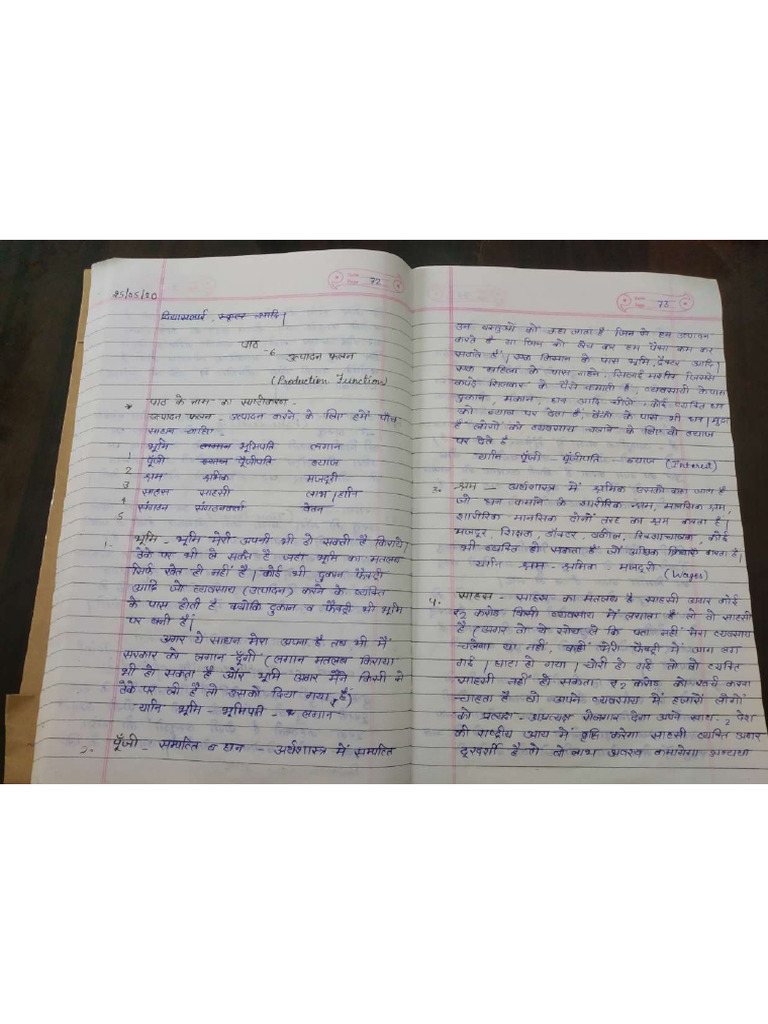 Page 72
25/05/20
दियासलाई, स्कूटर आदि|
पाठ
-6 उत्पादन फलन
(Production Function)
* पाठ के नाम का स्पष्टीकरण -
उत्पादन फलन - उत्पादन करने के लिए हमें पाँच
साधन चाहिए -
1 भूमि भूमिपति लगान
2 पूँजी पूँजीपति ब्याज
3 श्रम श्रमिक मजदूरी
4 साहस साहसी लाभ/हानि
5 संगठन संगठनकर्ता वेतन
1. भूमि - भूमि मेरी अपनी भी हो सकती है किराये/
ठेके पर भी ले सकते है जहां भूमि का मतलब
सिर्फ खेत ही नहीं है| कोई भी दुकान फैक्ट्री
आदि जो व्यवसाय (उत्पादन) करने के व्यक्ति
के पास होती है क्योंकि दुकान व फैक्ट्री भी भूमि
पर बनी हैं|
अगर ये साधन मेरा अपना है तब भी मैं
सरकार को लगान दूँगी (लगान मतलब किराया
भी हो सकता है और भूमि अगर मैंने किसी से
ठेके पर ली है तो उसको दिया गया है)
यानि भूमि - भूमिपति - लगान
2. पूँजी - सम्पत्ति व धन - अर्थशास्त्र में सम्पत्ति
Page 73
उन वस्तुओं को कहा जाता है जिन से हम उत्पादन
करते है या जिस को बेच कर हम पैसा कमा कर
सकते है| एक किसान के पास भूमि, ट्रैक्टर आदि|
एक महिला के पास गहने, सिलाई मशीन जिससे
कपड़े सिलकर के पैसे कमाती है, व्यवसायी के पास
दुकान, मकान, धन आदि चीजें, कोई व्यक्ति धन
को ब्याज पर देता है| बैंकों के पास भी धन/मुद्रा
है लोगों को व्यवसाय चलाने के लिए वो ब्याज
पर देते है
यानि पूँजी - पूँजीपति - ब्याज (Interest)
3. श्रम - अर्थशास्त्र में श्रमिक उसको कहा जाता है
जो धन कमाने के शारीरिक श्रम, मानसिक श्रम,
शारीरिक मानसिक दोनों तरह का श्रम करता है|
मजदूर, शिक्षक, डॉक्टर, वकील, रिक्शाचालक, कोई
भी व्यक्ति हो सकता है जो करता है|
यानि श्रम - श्रमिक - मजदूरी
(Wages)
4. साहस - साहस का मतलब है साहसी अगर कोई
रु2 करोड़ किसी व्यवसाय में लगाता है तो वो साहसी
है (अगर तो ये सोच ले कि पता नहीं मेरा व्यवसाय
चलेगा या नहीं, कहीं मेरी फैक्ट्री में आग लग
गई| घाटा हो गया| चोरी हो गई तो वो व्यक्ति
साहसी नहीं हो सकता, रु2 करोड़ को खर्च करना
चाहता है वो अपने व्यवसाय में हजारों लोगों
को प्रत्यक्ष - अप्रत्यक्ष रोजगार देगा अपने साथ-2 देश
की राष्ट्रीय आय में वृद्धि करेगा साहसी व्यक्ति अगर
दूरदर्शी है तो वो लाभ अवश्य कमायेगा अन्यथा